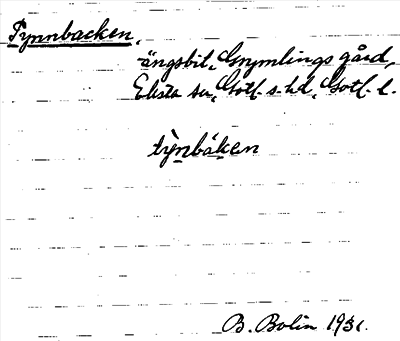 Tynnbacken,
ängsbit, Grymlings gård,
Elista sn, Gotl. s. hd, Gotl. l.
tỳnbáken
B. Bolin 1931.